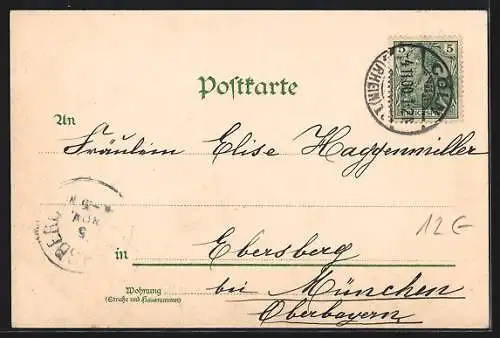 5 5
CÖLN
4.11.00. 1-2
(RHEIN) 1
Postkarte
An
Fräulein Elise Haggenmiller
5
NOV.
12 €
in Ebersberg
bei München
Wohnung
(Straße und Hausnummer)
Oberbayern